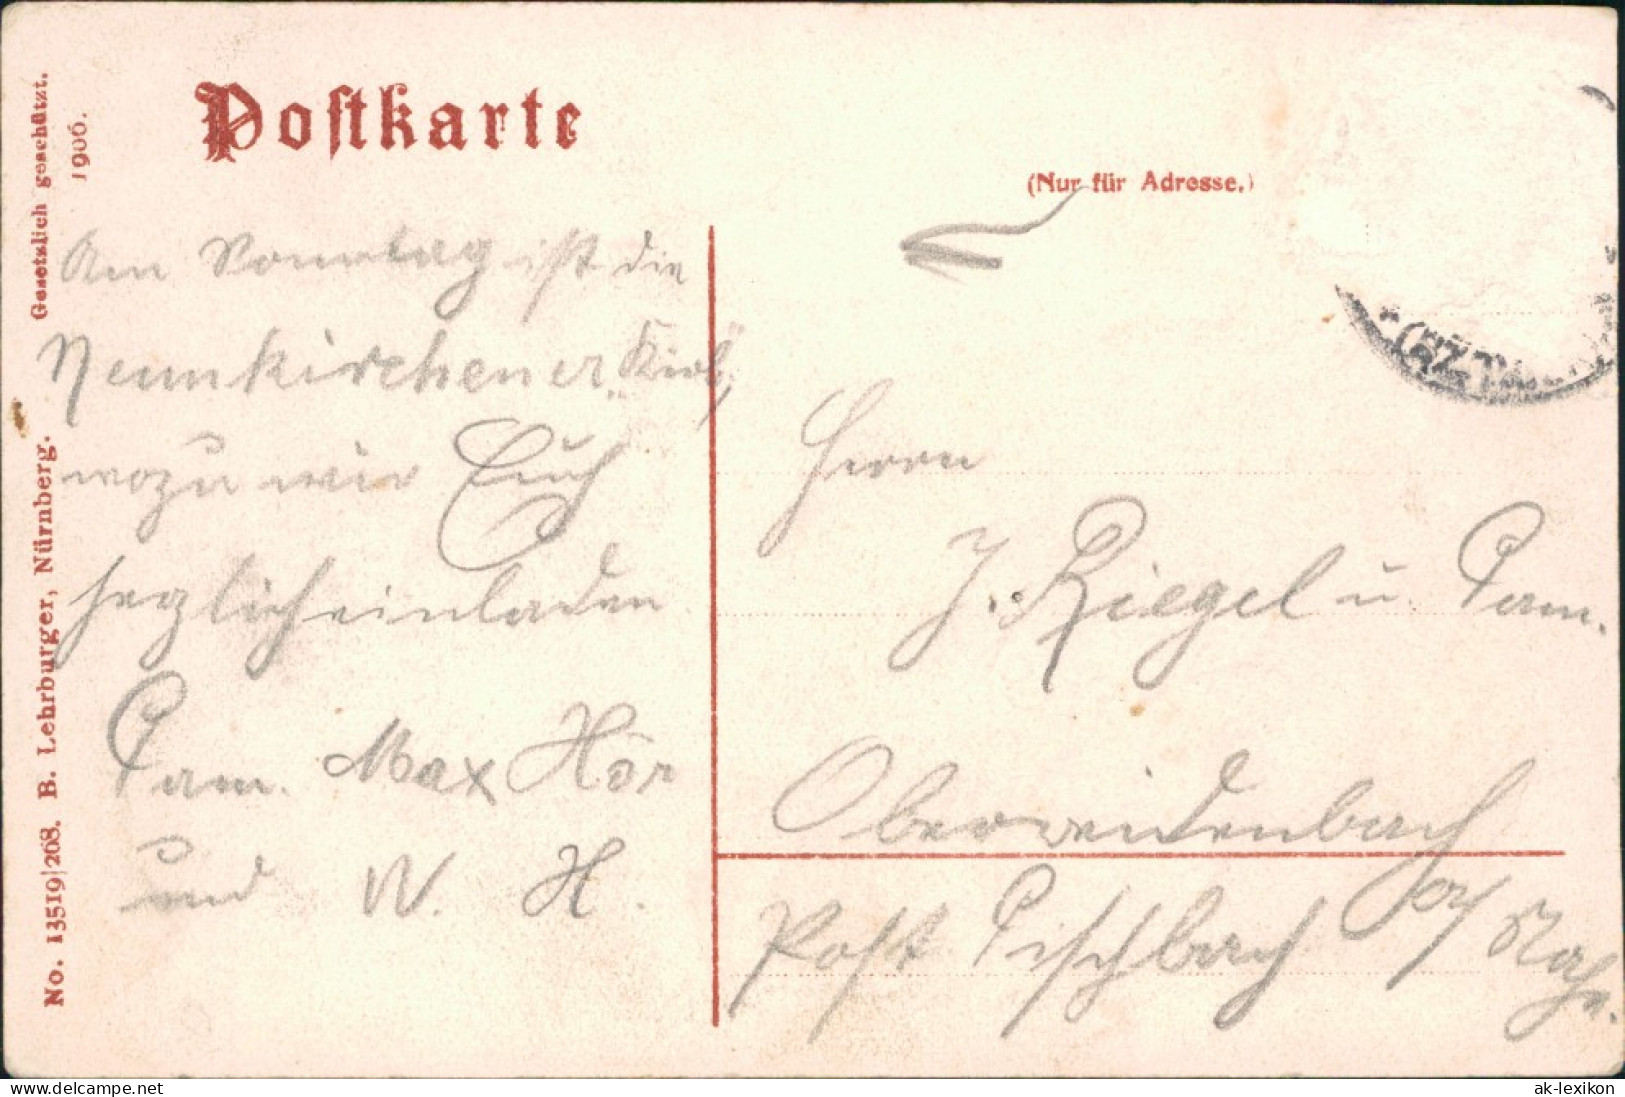 Postkarte
(Nur für Adresse.)
Gesetzlich geschützt.
1906.
No. 13519/268. B. Lehrburger, Nürnberg.
Am Sonntag ist die
Neunkirchener „Kirb“,
wozu wir Euch
herzlich einladen
Fam. Max Hör
und W. H.
Herrn
J. Riegel u. Fam.
Oberweidenbach
Post Fischbach a/ Nahe.
delcampe.net
ak-lexikon